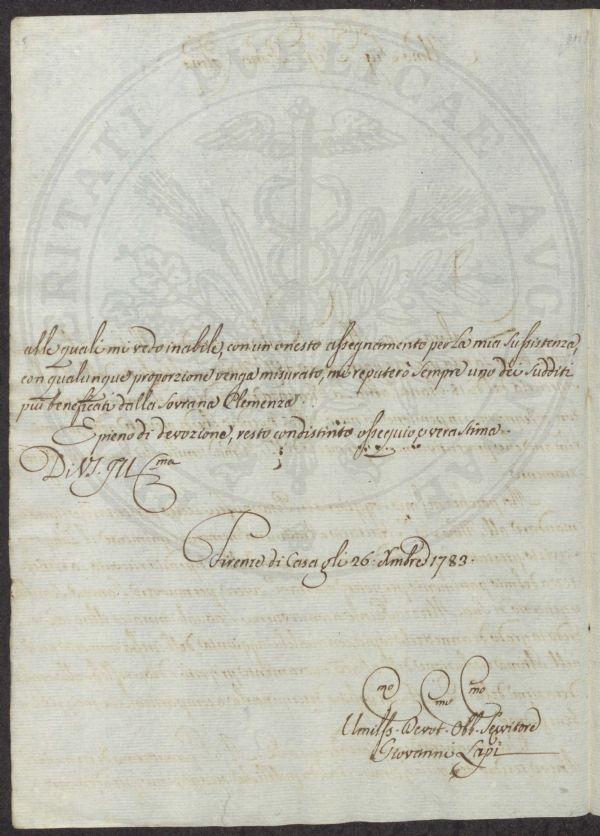 alle quali mi vedo inabile, con un onesto assegnamento per la mia sussistenza,
con qualunque proporzione venga misurato, me reputerò sempre uno dei sudditi
più beneficati dalla Sovrana Clemenza.
E pieno di devozione, resto con distinto ossequio e vera stima
Di VS. Ill.ma
Firenze di Casa gli 26. Xmbre 1783.
Umiliss.mo Devot.mo Obb.mo Servitore
Giovanni Lapi